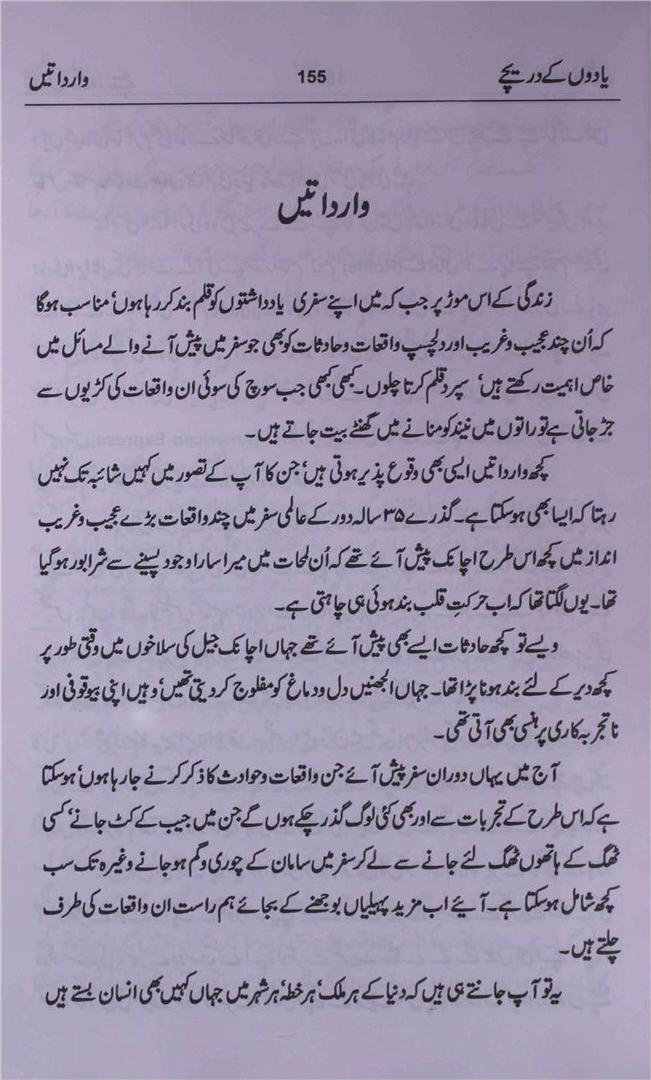 یادوں کے دریچے 155 وارداتیں
وارداتیں
زندگی کے اس موڑ پر جب کہ میں اپنے سفری یادداشتوں کو قلم بند کر رہا ہوں، مناسب ہوگا
کہ اُن چند عجیب و غریب اور دلچسپ واقعات و حادثات کو بھی جو سفر میں پیش آنے والے مسائل میں
خاص اہمیت رکھتے ہیں، سپردِ قلم کرتا چلوں۔ کبھی کبھی جب سوچ کی سوئی ان واقعات کی کڑیوں سے
جڑ جاتی ہے تو راتوں میں نیند کو منانے میں گھنٹے بیت جاتے ہیں۔
کچھ وارداتیں ایسی بھی وقوع پذیر ہوتی ہیں، جن کا آپ کے تصور میں کہیں شائبہ تک نہیں
رہتا کہ ایسا بھی ہوسکتا ہے۔ گذرے ۳۵ سالہ دور کے عالمی سفر میں چند واقعات بڑے عجیب و غریب
انداز میں کچھ اس طرح اچانک پیش آئے تھے کہ اُن لمحات میں میرا سارا وجود پسینے سے شرابور ہوگیا
تھا۔ یوں لگتا تھا کہ اب حرکتِ قلب بند ہوئی ہی چاہتی ہے۔
ویسے تو کچھ حادثات ایسے بھی پیش آئے تھے جہاں اچانک جیل کی سلاخوں میں وقتی طور پر
کچھ دیر کے لئے بند ہونا پڑا تھا۔ جہاں الجھنیں دل و دماغ کو مفلوج کر دیتی تھیں، وہیں اپنی بیوقوفی اور
ناتجربہ کاری پر ہنسی بھی آتی تھی۔
آج میں یہاں دورانِ سفر پیش آئے جن واقعات و حوادث کا ذکر کرنے جا رہا ہوں، ہوسکتا
ہے کہ اس طرح کے تجربات سے اور بھی کئی لوگ گذر چکے ہوں گے جن میں جیب کے کٹ جانے، کسی
ٹھگ کے ہاتھوں ٹھگ لئے جانے سے لے کر سفر میں سامان کے چوری و گم ہوجانے وغیرہ تک سب
کچھ شامل ہوسکتا ہے۔ آئیے اب مزید پہیلیاں بوجھنے کے بجائے ہم راست ان واقعات کی طرف
چلتے ہیں۔
یہ تو آپ جانتے ہی ہیں کہ دنیا کے ہر ملک، ہر خطہ، ہر شہر میں جہاں کہیں بھی انسان بستے ہیں